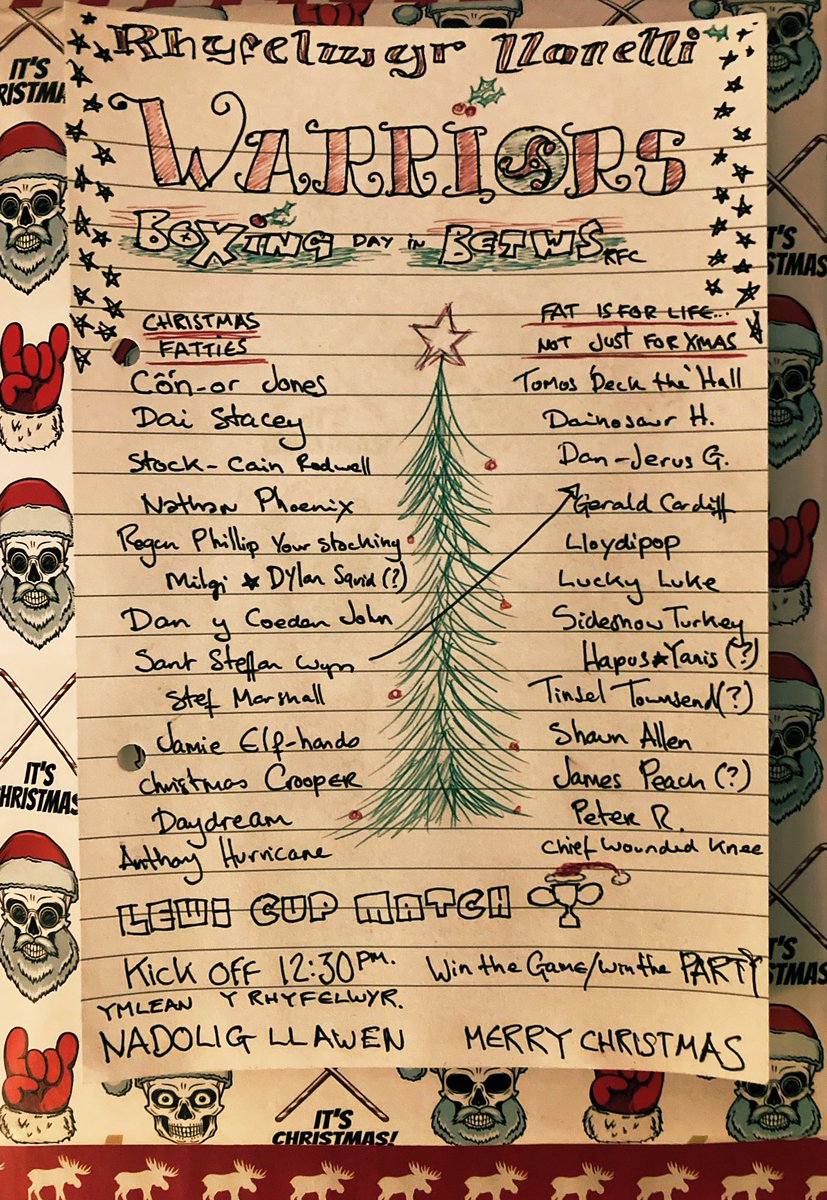 Rhyfelwyr Llanelli
WARRIORS
BOXING DAY IN BETWS RFC
CHRISTMAS
FATTIES
Côn-or Jones
Dai Stacey
Stock-Cain Rodwell
Nathan Phoenix
Regan Phillip Your Stocking
Milgi ★ Dylan Squid (?)
Dan y Coeden John
Sant Steffan Wynn
Stef Marshall
Jamie Elf-hands
Christmas Crooper
Daydream
Anthony Hurricane
FAT IS FOR LIFE...
NOT JUST FOR XMAS
Tomos 'Deck the' Hall
Dainosaur H.
Dan-Jerus G.
Gerald Cardiff
Lloydipop
Lucky Luke
Sideshow Turkey
Hapus★Yanis (?)
Tinsel Townsend (?)
Shawn Allen
James Peach (?)
Peter R.
Chief Wounded Knee
LEWI CUP MATCH
Kick OFF 12:30PM. Win the Game/Win the PARTY
YMLEAN Y RHYFELWYR.
NADOLIG LLAWEN MERRY CHRISTMAS
IT'S
CHRISTMAS
IT'S
CHRISTMAS
IT'S
CHRISTMAS!